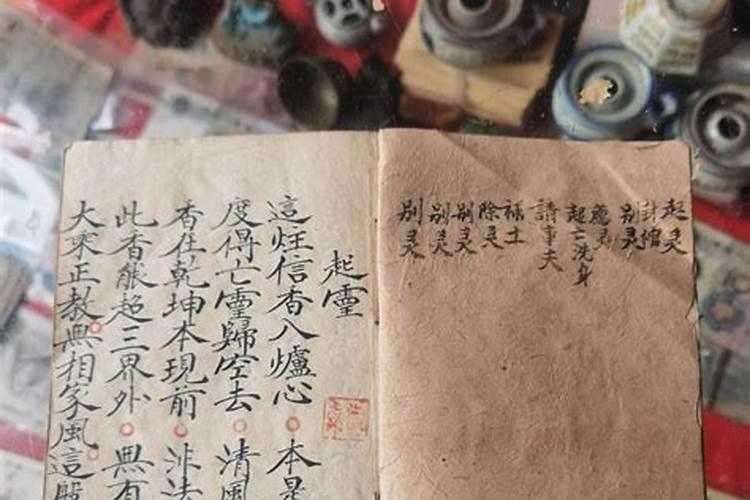 起灵
封棺
别灵
薦灵
起亡洗身
請事夫
禄土
除灵
别灵
别灵
别灵
起霊
這炷信香入爐心 本是
度得亡霊歸空去 清風
香在乾坤本現前 非法
此香能超三界外 無有
大乘正教無相家風這股